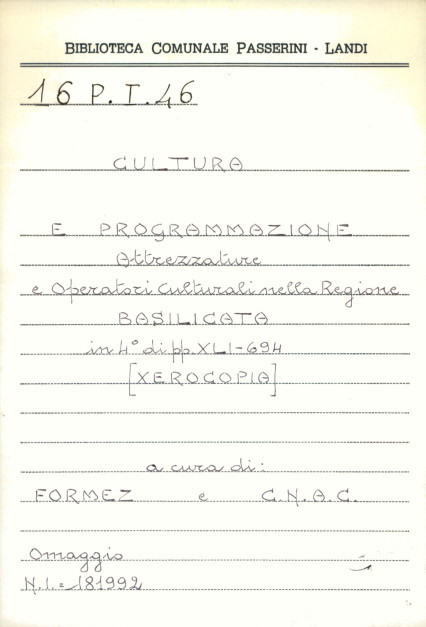 BIBLIOTECA COMUNALE PASSERINI - LANDI
16 P. T. 46
CULTURA
E PROGRAMMAZIONE
Attrezzature
e Operatori Culturali nella Regione
BASILICATA
in 4° di pp. XLI-694
[XEROCOPIA]
a cura di:
FORMEZ e C.N.A.C.
Omaggio
N.I. = 181992